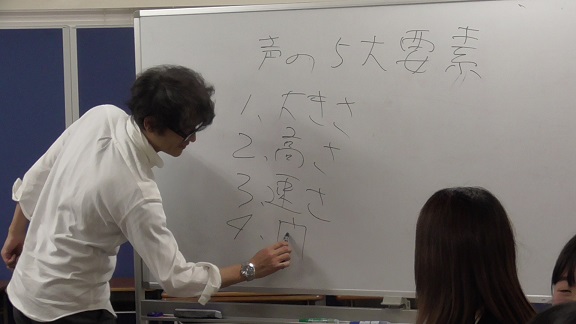 声の5大要素
1、大きさ
2、高さ
3、速さ
4、